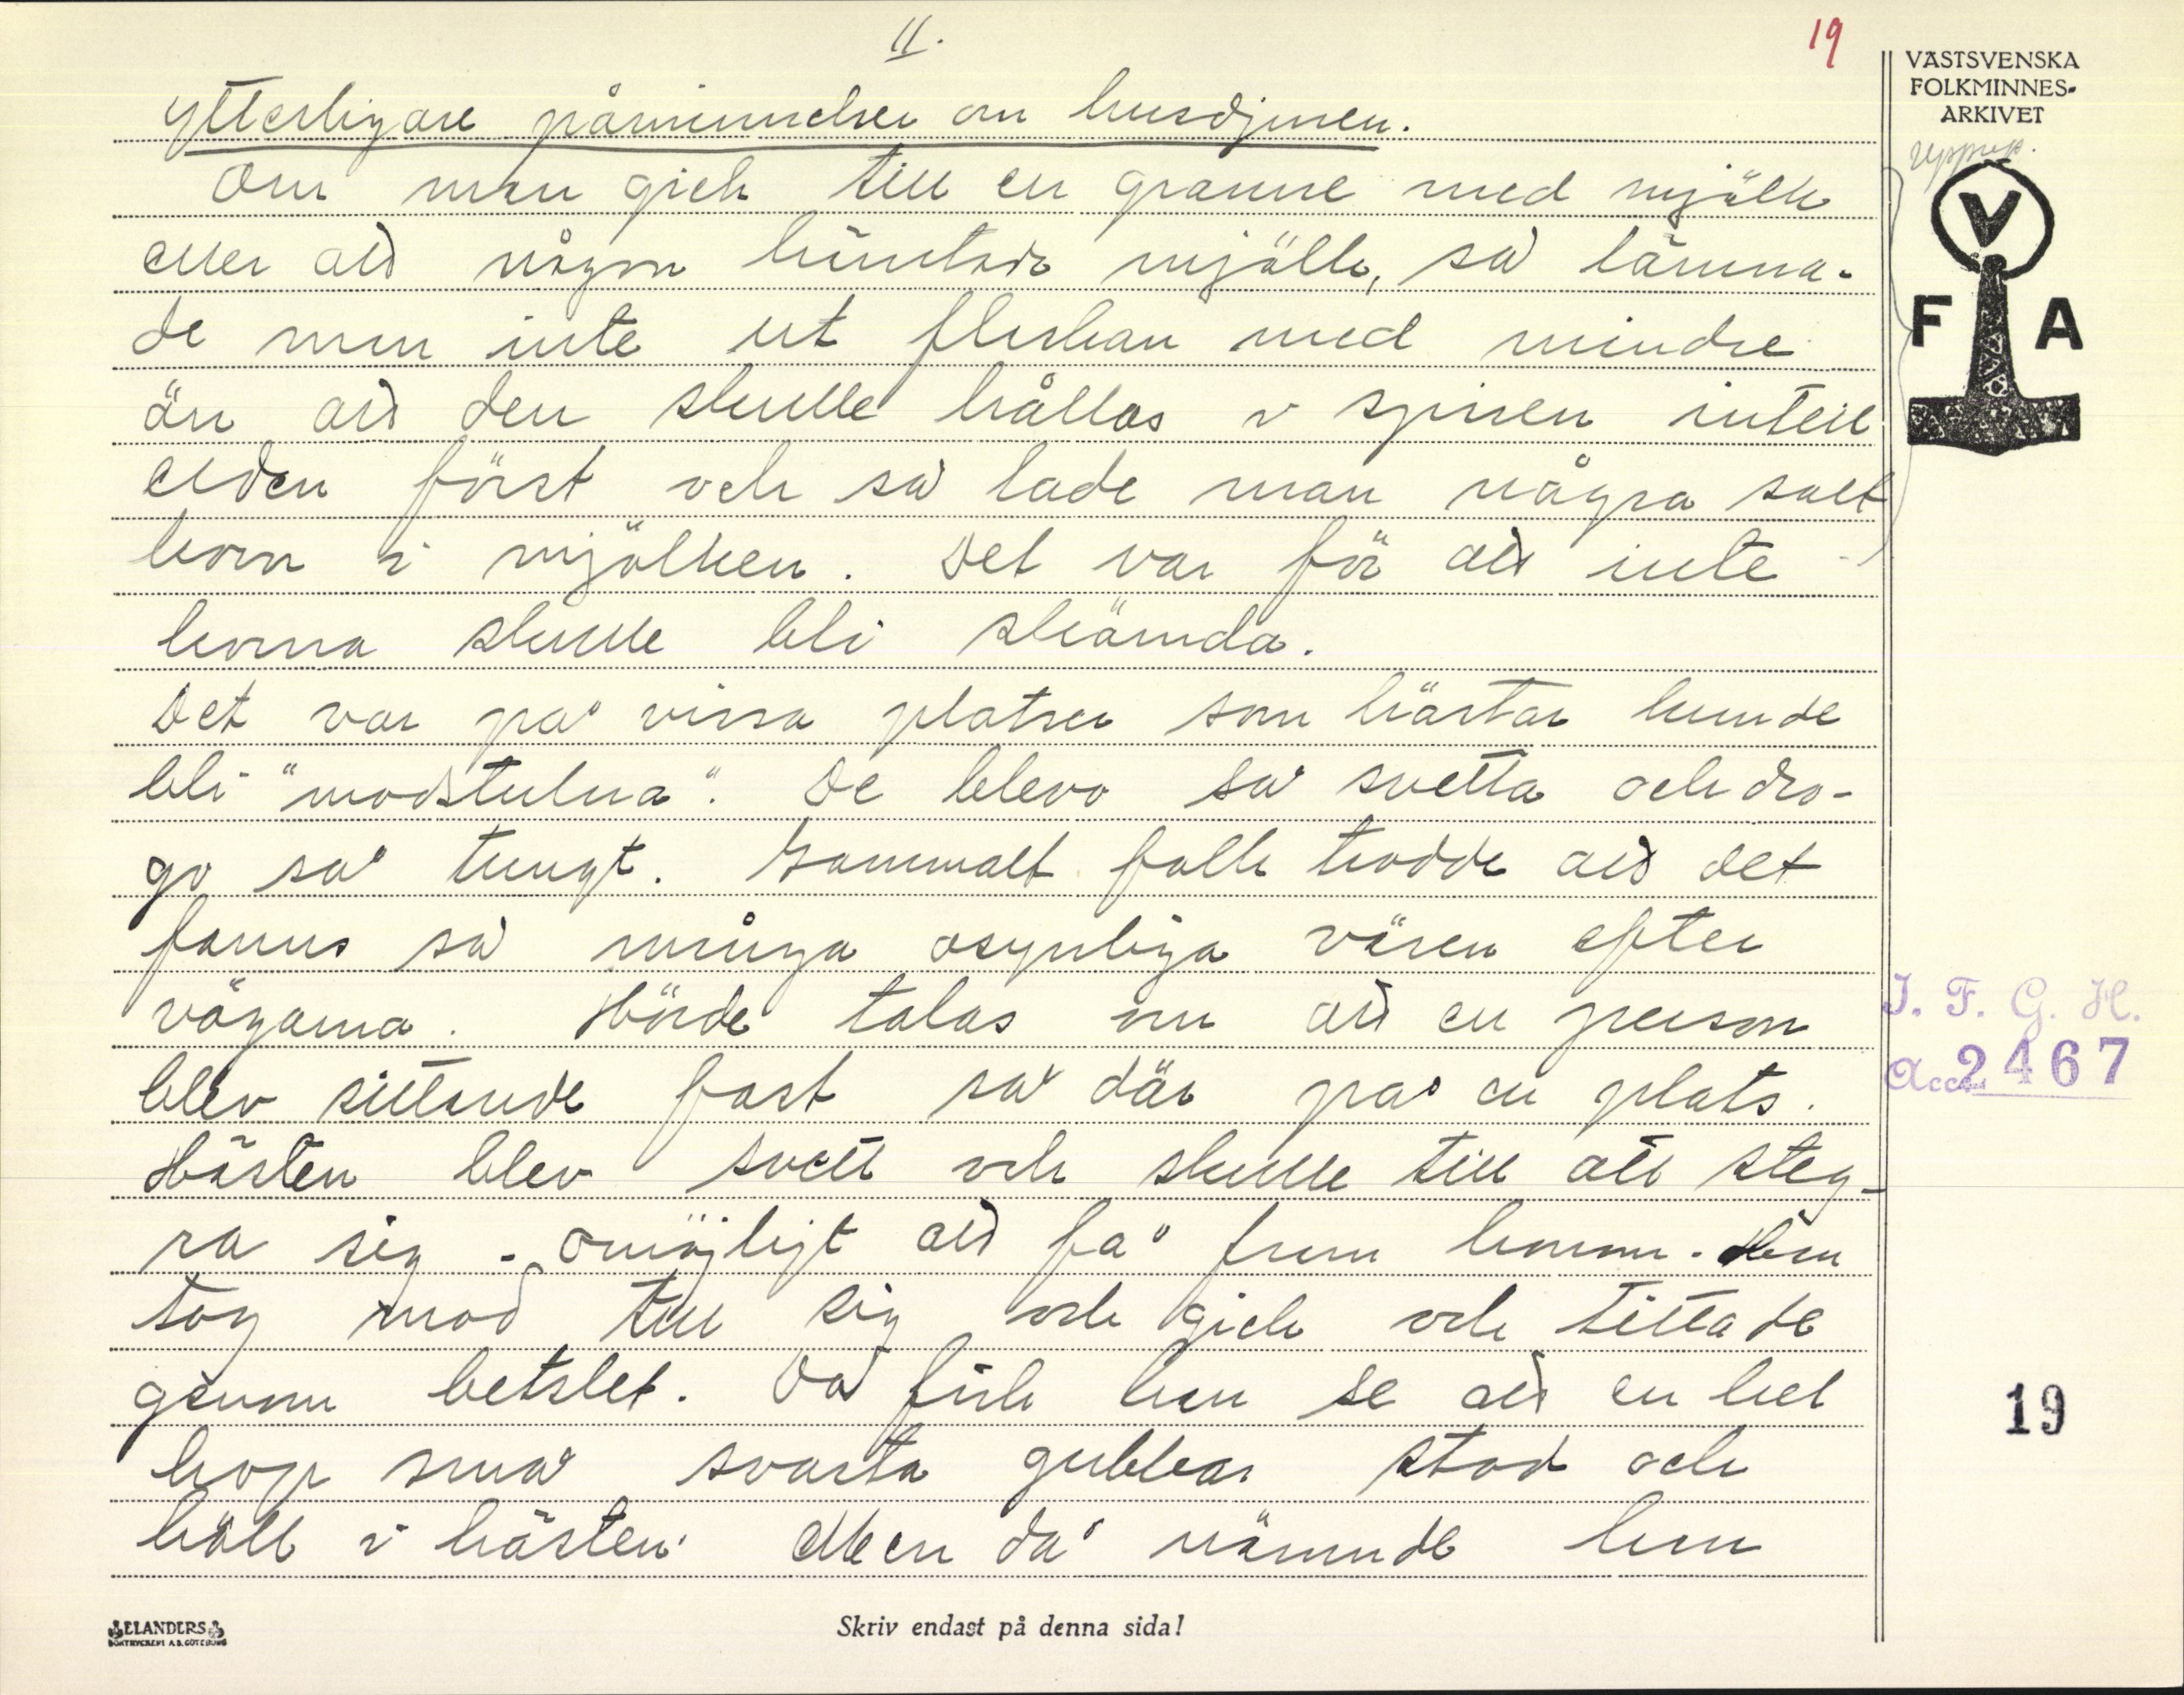 11.
19
VÄSTSVENSKA
FOLKMINNES-
ARKIVET
Ytterligare påminnelser om husdjuren.
Om man gick till en granne med mjölk
eller att någon hämtade mjölk, så lämna-
de man inte ut flaskan med mindre
än att den skulle hållas i spisen intill
elden först och så lade man några salt
korn i mjölken. Det var för att inte
korna skulle bli skämda.
Det var på vissa platser som hästar kunde
bli "modstulna". De blevo så svetta och dro-
go så tungt. Gammalt folk trodde att det
fanns så många osynliga väsen efter
vägarna. Hörde talas om att en person
blev sittande fast så där på en plats.
Hästen blev svett och skulle till att steg-
ra sig - omöjligt att få fram honom. Han
tog mod till sig och gick och tittade
genom betslet. Då fick han se att en hel
hop små svarta gubbar stod och
höll i hästen. Men då nämnde han
V
F A
I. F. G. H.
Acc. 2467
19
ELANDERS
BOKTRYCKERI A.B. GÖTEBORG
Skriv endast på denna sida!